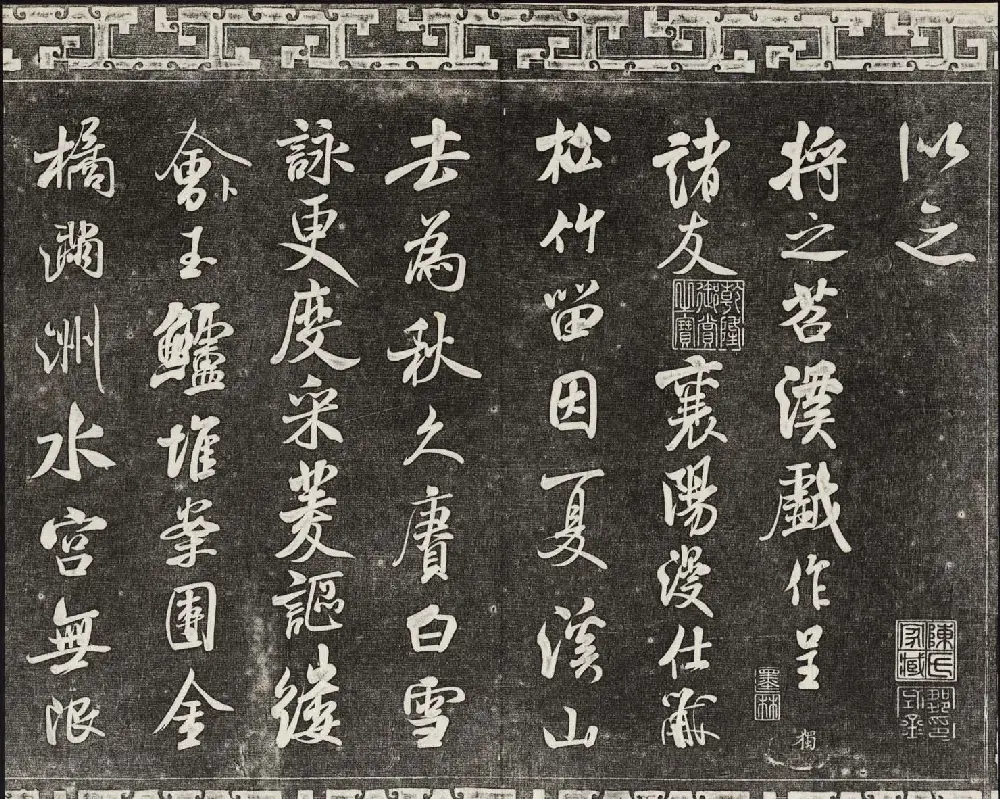 以之
將之苕溪戲作呈
獨
諸友
襄陽漫仕黻
松竹留因夏溪山
去為秋久賡白雪
詠更度采菱謳縷
會玉鱸堆案團金
橘滿洲水宮無限
乾隆御賞之寶
墨林